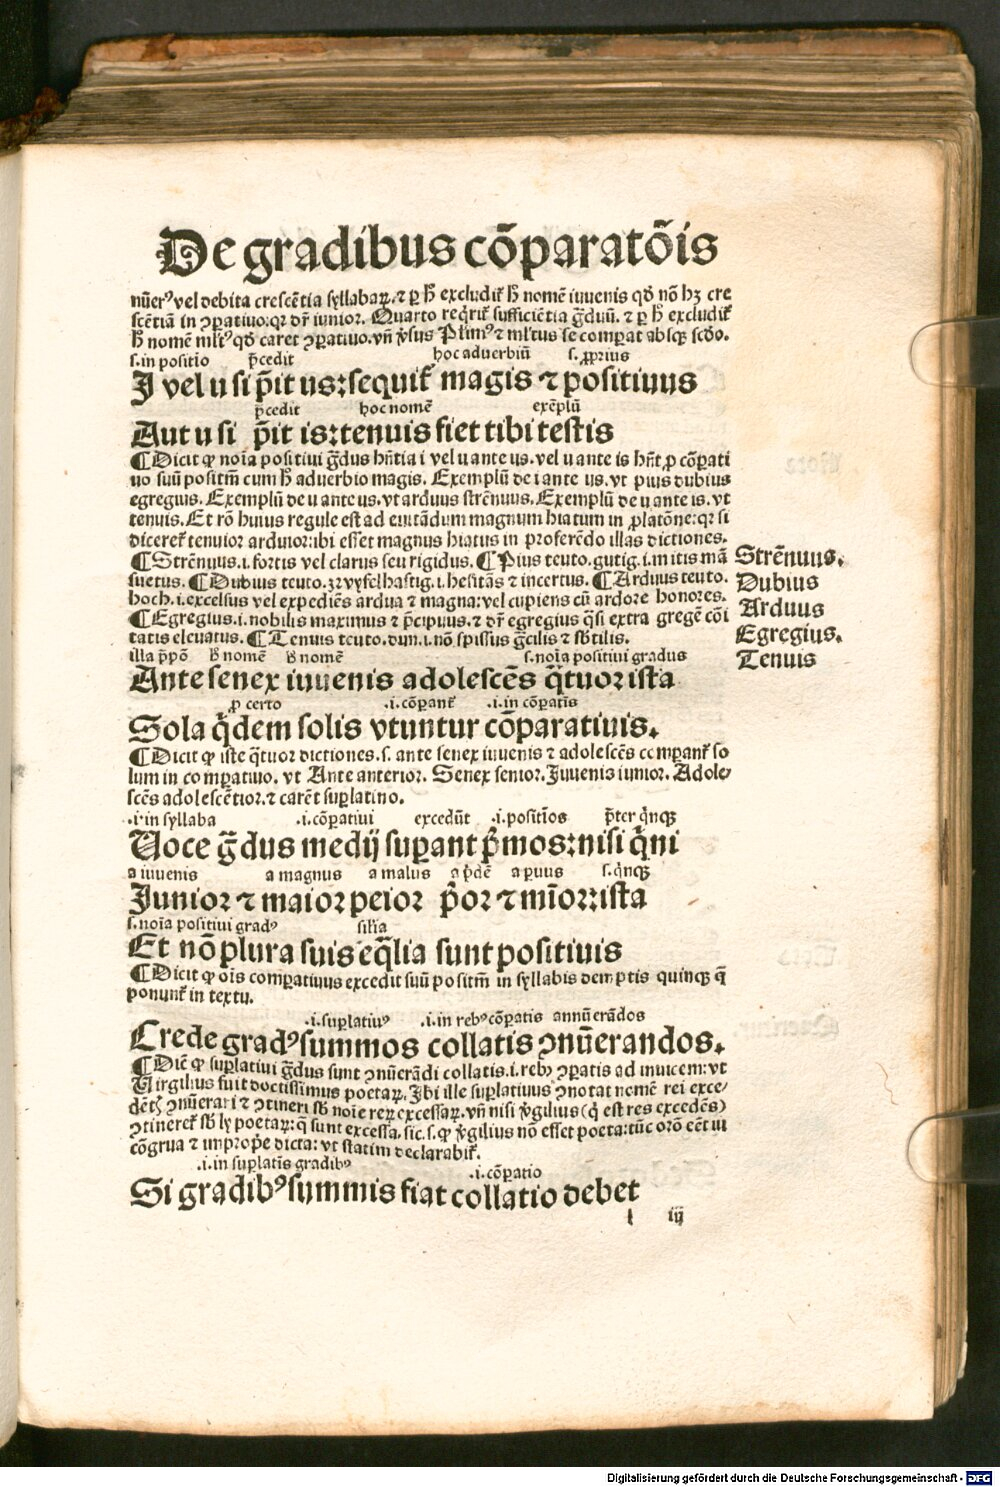 De gradibus cōparatōis
nūerꝰ vel debita crescētia syllabaꝝ. ⁊ ꝑ ħ excludit̉ ħ nomē iuuenis qđ nō hꝫ cre
scētiā in ꝯꝑatiuo: qꝛ dr̄ iunior. Quarto reqͥrit̉ sufficiētia g̃duū. ⁊ ꝑ ħ excludit̉
ħ nomē ml̓tꝰ qđ caret ꝯꝑatiuo. vñ v̓sus Plimꝰ ⁊ ml̓tus se comꝑat absqꝫ scđo.
s. in positio p̄cedit hoc aduerbiū s. ꝓprius
I vel u si p̄it us: sequit̉ magis ⁊ positiuus
p̄cedit hoc nomē exēplū
Aut u si p̄it is: tenuis fiet tibi testis
¶ Dicit ꝙ noīa positiui g̃dus hñtia i vel u ante us. vel u ante is hñt ꝓ cōꝑati
uo suū positm̄ cum ħ aduerbio magis. Exemplū de i ante us. vt pius dubius
egregius. Exemplū de u ante us. vt arduus strēnuus. Exemplū de u ante is. vt
tenuis. Et rō huius regule est ad euitādum magnum hiatum in ꝓlatōne: qꝛ si
diceret̉ tenuior arduior: ibi esset magnus hiatus in proferēdo illas dictiones.
¶ Strēnuus. i. fortis vel clarus seu rigidus. ¶ Pius teuto. gutig. i. mitis mā
suetus. ¶ Dubius teuto. zvyfelhaftig. i. hesitās ⁊ incertus. ¶ Arduus teuto.
hoch. i. excelsus vel expediēs ardua ⁊ magna: vel cupiens cū ardore honores.
¶ Egregius. i. nobilis maximus ⁊ p̄cipuus. ⁊ dr̄ egregius q̄si extra gregē cōi
tatis eleuatus. ¶ Tenuis teuto. dun. i. nō spissus g̃cilis ⁊ sb̓tilis.
Strēnuus.
Dubius
Arduus
Egregius.
Tenuis
illa p̄pō ħ nomē ħ nomē s. noīa positiui gradus
Ante senex iuuenis adolescēs q̄tuor ista
ꝓ certo .i. cōparant̉ .i. in cōparatis
Sola q̄dem solis vtuntur cōparatiuis.
¶ Dicit ꝙ iste q̄tuor dictiones. s. ante senex iuuenis ⁊ adolescēs comꝑant̉ so
lum in comꝑatiuo. vt Ante anterior. Senex senior. Iuuenis iunior. Adole⸗
scēs adolescētior. ⁊ carēt suꝑlatiuo.
.i. in syllaba .i. cōꝑatiui excedūt .i. positiuos p̄ter qͥnqꝫ
Uoce g̃dus medij suꝑant p̓mos: nisi qͥni
a iuuenis a magnus a malus a p̓dē a paruus s. qͥnqꝫ
Iunior ⁊ maior peior p̓or ⁊ mīor: ista
s. noīa positiui gradꝰ silia
Et nō plura suis eq̄lia sunt positiuis
¶ Dicit ꝙ oīs comꝑatiuus excedit suū positm̄ in syllabis demptis quinqꝫ q̄
ponunt̉ in textu.
.i. suꝑlatiuꝰ .i. in rebꝰ cōꝑatis annūerādos
Crede gradꝰ summos collatis ꝯnūerandos.
¶ Dic̄ ꝙ suꝑlatiui g̃dus sunt ꝯnūerādi collatis. i. rebꝰ ꝯꝑatis ad inuicem: vt
Virgilius fuit doctissimus poetaꝝ. Ibi ille suꝑlatiuus ꝯnotat nomē rei exce⸗
dētꝭ ꝯnūerari ⁊ ꝯtineri sb̓ noīe reꝝ excessaꝝ. vñ nisi v̓gilius (q̄ est res excedēs)
ꝯtineret̉ sb̓ ly poetaꝝ: q̄ sunt excessa. sic. s. ꝙ v̓gilius nō esset poeta: tūc orō eēt in
cōgrua ⁊ imprope dicta: vt statim declarabit̉.
.i. in suꝑlatis gradibꝰ .i. cōꝑatio
Si gradibꝰ summis fiat collatio debet
l iij
Digitalisierung gefördert durch die Deutsche Forschungsgemeinschaft - DFG